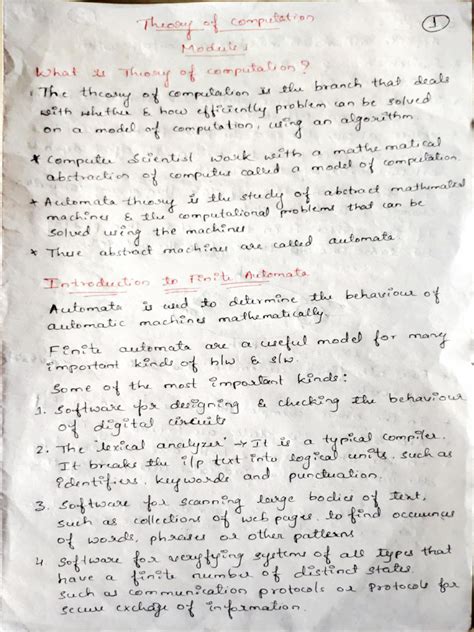 Theory of Computation
1
Module 1
What is Theory of computation?
The theory of computation is the branch that deals
with whether & how efficiently problem can be solved
on a model of computation, using an algorithm
* Computer Scientist work with a mathematical
abstraction of computer called a model of computation
* Automata theory is the study of abstract mathematical
machines & the computational problems that can be
solved using the machines
* These abstract machines are called automata
Introduction to Finite Automata
Automata is used to determine the behaviour of
automatic machines mathematically.
Finite automata are a useful model for many
important kinds of h/w & s/w.
Some of the most important kinds:
1. Software for designing & checking the behaviour
of digital circuits
2. The 'lexical analyzer' → It is a typical compiler.
It breaks the i/p text into logical units, such as
identifiers, keywords and punctuation.
3. Software for scanning large bodies of text,
such as collections of web pages, to find occurences
of words, phrases or other patterns
4 Software for verifying systems of all types that
have a finite number of distinct states.
such as communication protocols or Protocols for
secure exchage of information.